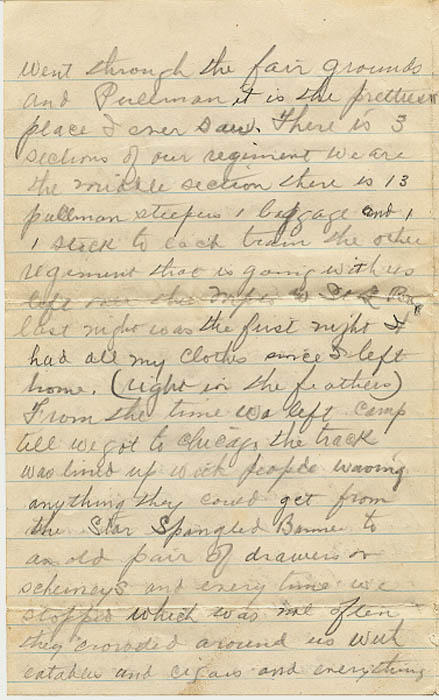 went through the fair grounds
and Pullman it is the prettiest
place I ever saw. There is 3
sections of our regiment we are
the middle section there is 13
pullman sleepers 1 baggage and 1
1 stock to each train the other
regiment that is going with us
left over the
last night was the first night I
had all my clothes since I left
home. (right in the feathers)
From the time we left camp
till we got to Chicago the track
was lined up with people waving
anything they could get from
the Star Spangled Banner to
an old pair of drawers or
and every time we
stopped which was not often
they crowded around us with
eatables and cigars and everything